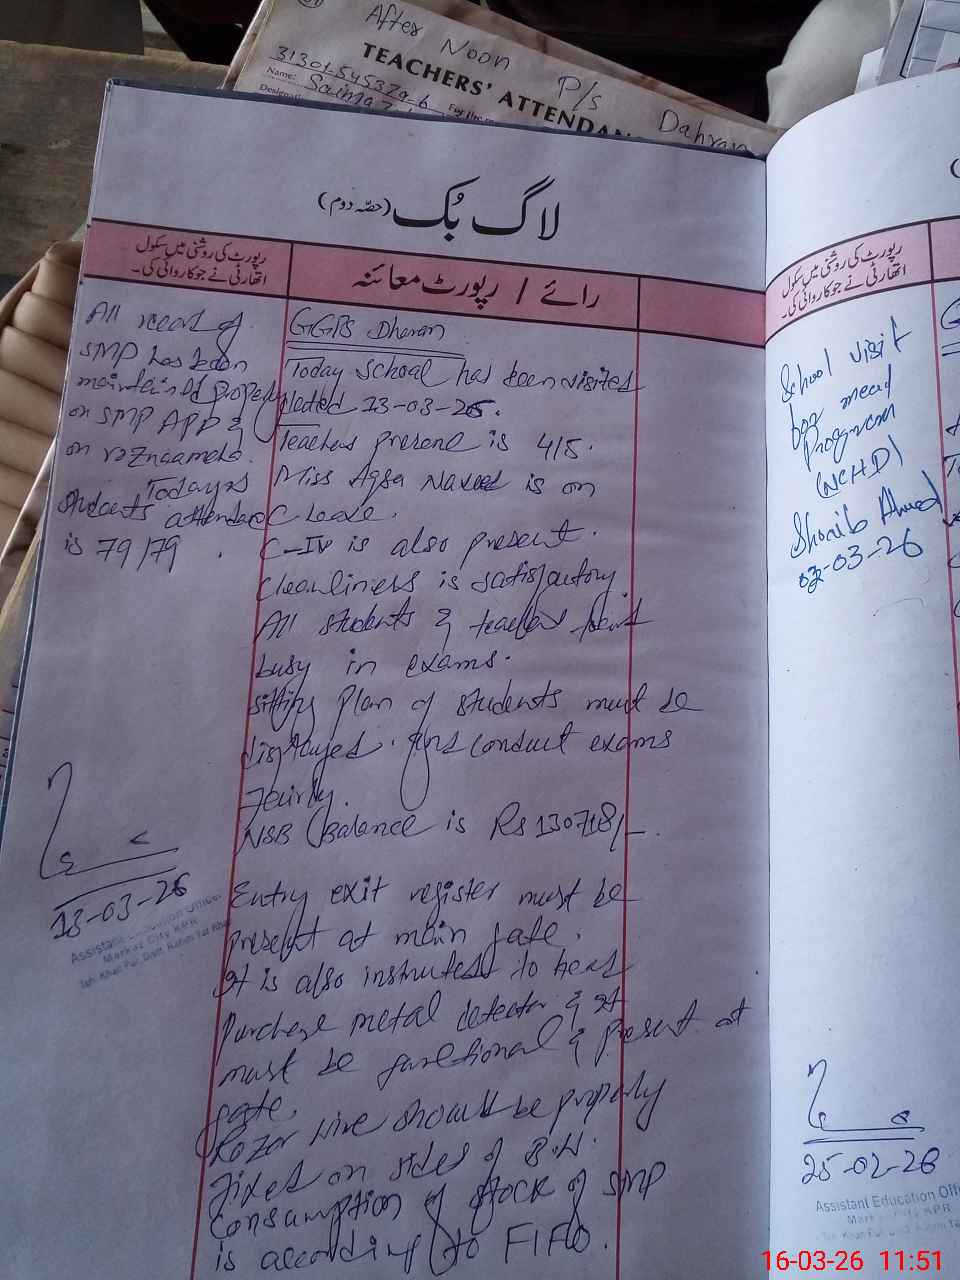 After Noon
P/s
Dahran
TEACHERS' ATTENDAN
31301-5453279-6
Name: Saima
Designati
For the m
لاگ بُک (حصّہ دوم)
رپورٹ کی روشنی میں سکول
اتھارٹی نے جو کاروائی کی۔
رائے / رپورٹ معائنہ
All record of
SMP has been
maintained properly
on SMP APP &
on
Today's
students attendance
is 79/79 .
13-03-26
Assistant Education Officer
Markaz City KPR
Teh: Khan Pur, Distt: Rahim Yar Khan
GGPS Dharan
Today school has been visited
dated 13-03-26.
Teachers present is 4/5.
Miss Aqsa Naveed is on
C leave.
C-IV is also present.
Cleanliness is satisfactory
All students & teachers found
busy in exams.
sitting plan of students must be
displayed. and conduct exams
fairly.
NSB Balance is Rs 130718/-.
Entry exit register must be
present at main gate.
It is also instructed to head
Purchase metal detector & it
must be functional & present at
gate.
Rozor wire should be properly
fixed on sides of B.W.
Consumption of stock of SMP
is according to FIFO.
رپورٹ کی روشنی میں سکول
اتھارٹی نے جو کاروائی کی۔
School visit
for meal
Program
(NCHD)
Shoaib Ahmed
02-03-26
25-02-26
Assistant Education Offi
Markaz City KPR
Teh: Khan Pur, Distt: Rahim Yar
16-03-26 11:51